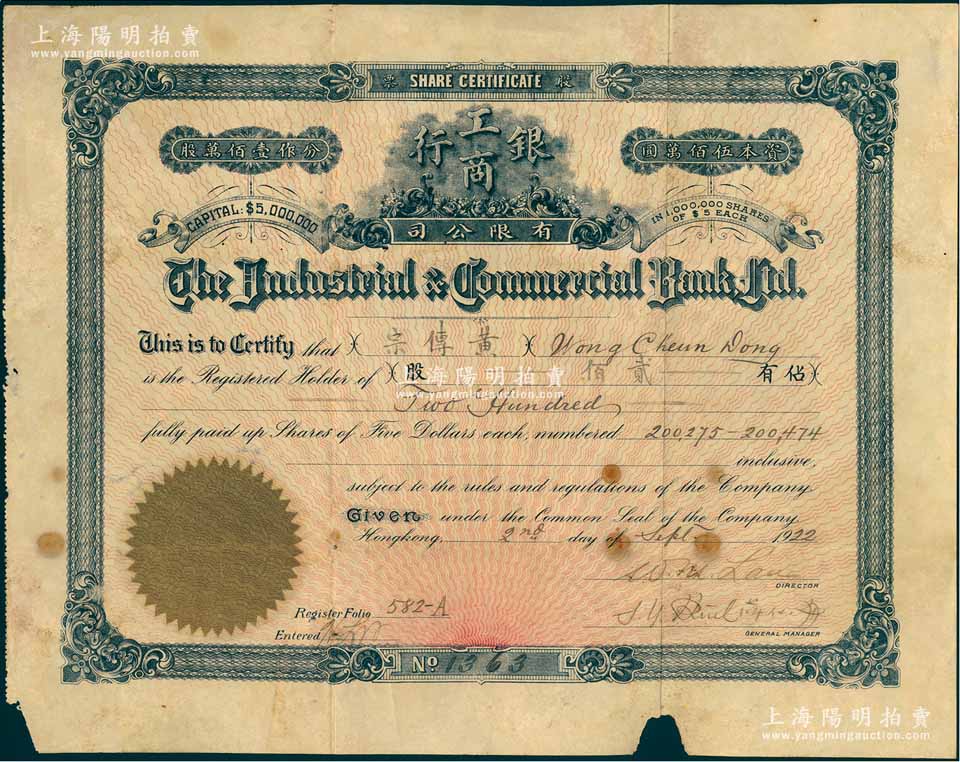 上海陽明拍賣
www.yangmingauction.com
票 SHARE CERTIFICATE 股
行工銀
商
股萬佰壹作分
圓萬佰伍本資
CAPITAL: $5,000,000
IN 1,000,000 SHARES
OF $5 EACH
司公限有
The Industrial & Commercial Bank, Ltd.
This is to Certify that )( 宗傳黃 )( Wong Cheun Dong
is the Registered Holder of )( 股 佰貳 有佔 )(
上海陽明拍賣
www.yangmingauction.com
Two Hundred
fully paid up Shares of Five Dollars each, numbered 200,275 – 200,474
inclusive,
subject to the rules and regulations of the Company
Given under the Common Seal of the Company
Hongkong, 2nd day of Sept 1922
DIRECTOR
Register Folio 582-A
Entered
GENERAL MANAGER
No 1363
上海陽明拍賣
www.yangmingauction.com